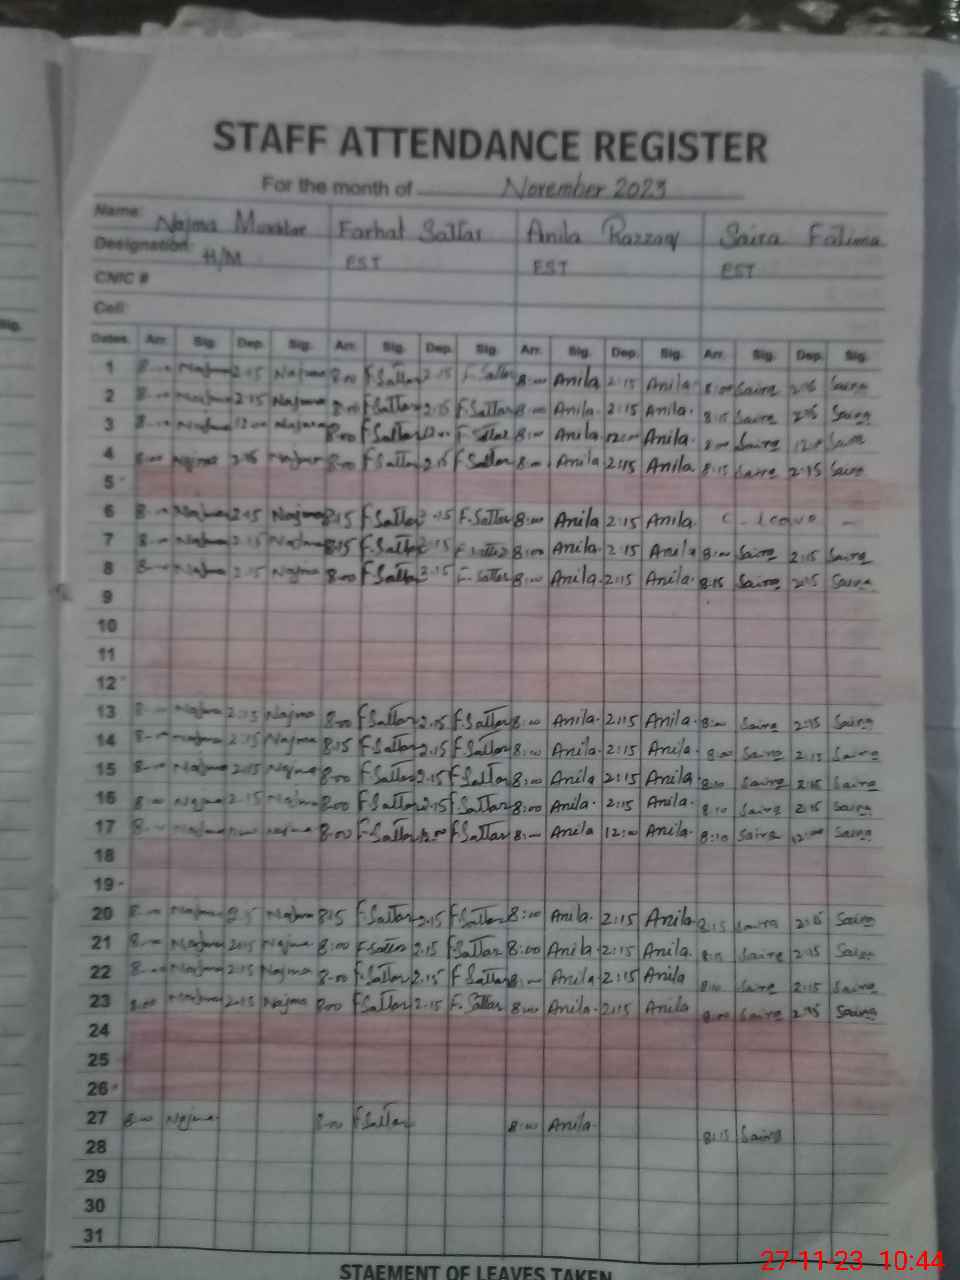 STAFF ATTENDANCE REGISTER
For the month of November 2023
Name: Najma Mukhtar Farhat Sattar Anila Razzaq Saira Fatima
Designation: H/M EST EST EST
CNIC #
Cell:
Dates. Arr. Sig. Dep. Sig. Arr. Sig. Dep. Sig. Arr. Sig. Dep. Sig. Arr. Sig. Dep. Sig.
1 8-00 Najma 2:15 Najma 8:00 F.Sattar 2:15 F.Sattar 8:00 Anila 2:15 Anila 8:00 Saira 2:15 Saira
2 8-00 Najma 2:15 Najma 8:00 F.Sattar 2:15 F.Sattar 8:00 Anila 2:15 Anila. 8:15 Saira 2:15 Saira
3 8-00 Najma 12:00 Najma 8:00 F.Sattar 12:00 F.Sattar 8:00 Anila 12:00 Anila. Saira Saira
4 8:00 Najma 2:15 Najma 8:00 F.Sattar 2:15 F.Sattar 8:00 Anila 2:15 Anila 8:15 Saira 2:15 Saira
5
6 8-00 Najma 2:15 Najma 8:15 F.Sattar 2:15 F.Sattar 8:00 Anila 2:15 Anila. C-leave -
7 8-00 Najma 2:15 Najma 8:15 F.Sattar 2:15 F.Sattar 8:00 Anila. 2:15 Anila 8:00 Saira 2:15 Saira
8 8-00 Najma 2:15 Najma 8:00 F.Sattar 2:15 F.Sattar 8:00 Anila. 2:15 Anila. 8:15 Saira 2:15 Saira
9
10
11
12
13 8-00 Najma 2:15 Najma 8-00 F.Sattar 2.15 F.Sattar 8:00 Anila. 2:15 Anila. 8:00 Saira 2:15 Saira
14 8-00 Najma 2:15 Najma 8:15 F.Sattar 2.15 F.Sattar 8:00 Anila. 2:15 Anila. 8:00 Saira 2:15 Saira
15 8-00 Najma 2:15 Najma 8:00 F.Sattar 2.15 F.Sattar 8:00 Anila 2:15 Anila 8:10 Saira 2:15 Saira
16 8-00 Najma 2:15 Najma 8:00 F.Sattar 2.15 F.Sattar 8:00 Anila. 2:15 Anila. 8:10 Saira 2:15 Saira
17 8-00 Najma 12:00 Najma 8:00 F.Sattar 12:00 F.Sattar 8:00 Anila 12:00 Anila. 8:10 Saira 12:00 Saira
18
19
20 8-00 Najma 2:15 Najma 8:15 F.Sattar 2.15 F.Sattar 8:00 Anila. 2:15 Anila 8:15 Saira 2:15 Saira
21 8-00 Najma 2:15 Najma 8:00 F.Sattar 2.15 F.Sattar 8:00 Anila 2:15 Anila. 8:15 Saira 2:15 Saira
22 8-00 Najma 2:15 Najma 8-00 F.Sattar 2.15 F.Sattar 8:00 Anila 2:15 Anila 8:10 Saira 2:15 Saira
23 8:00 Najma 2:15 Najma 8:00 F.Sattar 2.15 F.Sattar 8:00 Anila. 2:15 Anila 8:00 Saira 2:15 Saira
24
25
26
27 8-00 Najma 8-00 F.Sattar 8:00 Anila. 8:15 Saira
28
29
30
31
STAEMENT OF LEAVES TAKEN
27-11-23 10:44